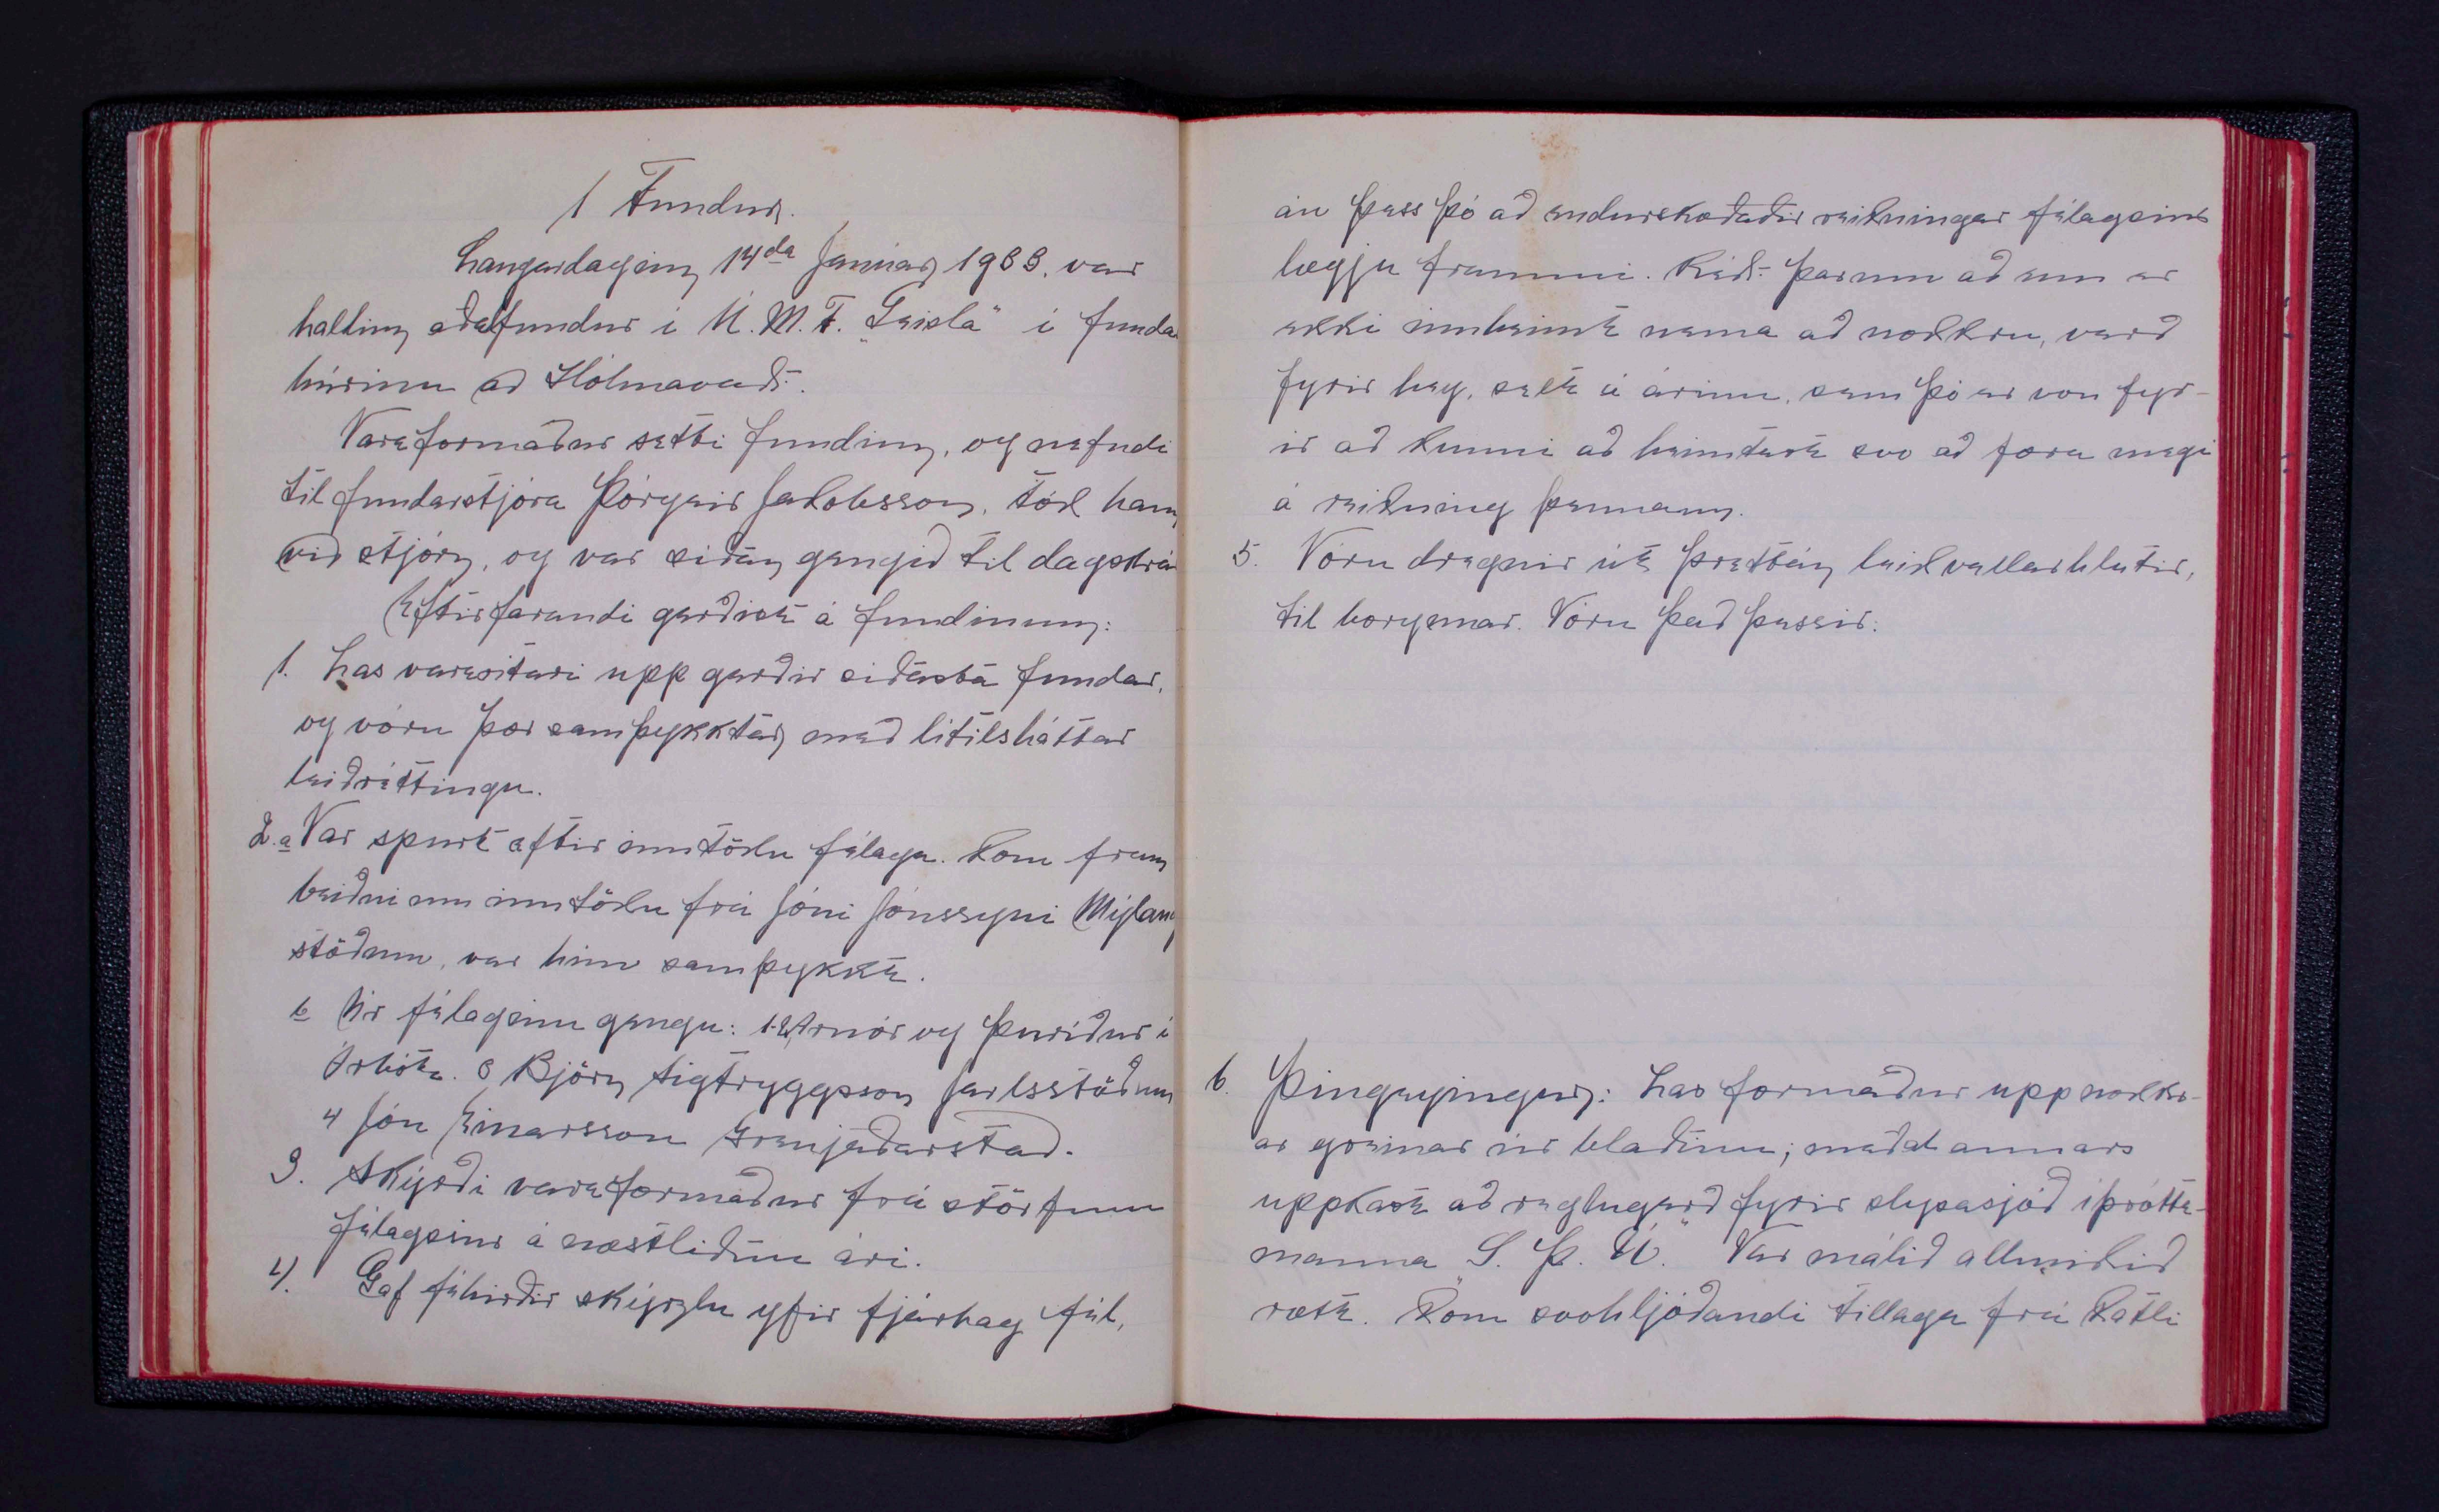 1 Fundur.
Laugardaginn 14da Janúar 1933. var
haldinn aðalfundur í U.M.F. „Geisla" í funda
húsinu að Hólmavaði.
Varaformaður setti fundinn, og nefndi
til fundarstjóra Þórgeir Jakobsson, tók hann
við stjórn, og var síðan gengið til dagskrár
Eftirfarandi gerðist á fundinum:
1. Las vararitari upp gerðir síðasta fundar,
og vóru þær samþykktar með lítilsháttar
leiðréttingu.
2. a Var spurt eftir inntöku félaga. Kom fram
beiðni um inntöku frá Jóni Jónssyni Mýlaug
stöðum, var hún samþykkt.
b Úr félaginu gengu: 1-2, Arnór og Þuríður í
Árbót. 3 Björn Sigtryggsson Jarlsstöðum
4 Jón Einarsson Grenjaðarstað.
3. Skýrði varaformaður frá störfum
félagsins á næstliðnu ári.
4. Gaf féhirðir skýrslu yfir fjárhag fél,
án þess þó að endurskoðaðir reikningar félagsins
lægju frammi. Réði þar um að enn er
ekki innheimt nema að nokkru, verð
fyrir hey, selt á árinu, sem þó er von fyr-
ir að kunni að heimtast svo að færa megi
á reikning þennann.
5. Vóru dregnir út þrettán leikvallarhlutir,
til borgunar. Vóru það þessir:
6. Þingeyingur: Las formaður upp nokkr-
ar greinar úr blaðinu; meðal annars
uppkast að reglugerð fyrir slysasjóð íþrótta-
manna „S. Þ. U." Var málið allmikið
rætt. Kom svohljóðandi tillaga frá Katli